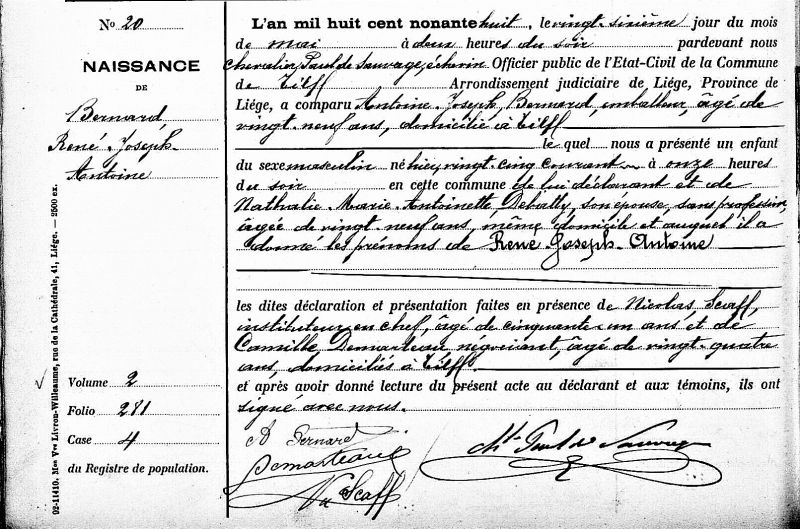 No 20
NAISSANCE
DE
Bernard,
René-Joseph-
Antoine
Volume 2
Folio 281
Case 4
du Registre de population.
92-11410. Mme Vve Livron-Willeaume, rue de la Cathédrale, 41, Liége. — 2500 ex.
L'an mil huit cent nonante huit, le vingt-sixième jour du mois
de mai à deux heures du soir pardevant nous
Chevalier, Paul de Sauvage, échevin Officier public de l'Etat-Civil de la Commune
de Tilff Arrondissement judiciaire de Liége, Province de
Liége, a comparu Antoine-Joseph, Bernard, emballeur, âgé de
vingt-neuf ans, domicilié à Tilff
le quel nous a présenté un enfant
du sexe masculin né hier, vingt-cinq courant à onze heures
du soir en cette commune de lui déclarant et de
Nathalie-Marie-Antoinette Dehatty, son épouse, sans profession,
âgée de vingt-neuf ans, même domicile et auquel il a
donné les prénoms de René-Joseph-Antoine
les dites déclaration et présentation faites en présence de Nicolas, Scaff,
instituteur en chef, âgé de cinquante-un ans et de
Camille, Demarteau négociant, âgé de vingt-quatre
ans, domiciliés à Tilff.
et après avoir donné lecture du présent acte au déclarant et aux témoins, ils ont
signé avec nous.
A Bernard
Demarteau
Scaff
Paul de Sauvage